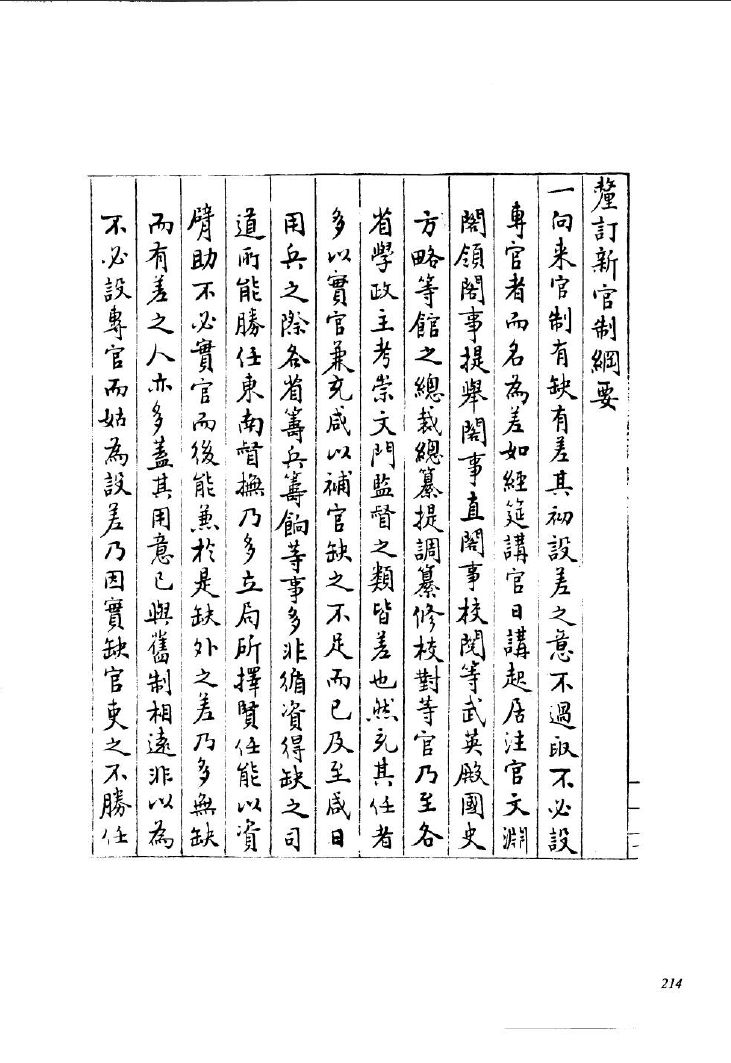 釐訂新官制綱要
一向来官制有缺有差其初設差之意不過取不必設
專官者而名為差如經筵講官日講起居注官文淵
閣領閣事提舉閣事直閣事校閱等武英殿國史
方略等館之總裁總纂提調纂修校對等官乃至各
省學政主考崇文門監督之類皆差也然充其任者
多以實官兼充咸以補官缺之不足而已及至咸日
用兵之際各省籌兵籌餉等事多非循資得缺之司
道所能勝任東南督撫乃多立局所擇賢任能以資
臂助不必實官而後能兼於是缺外之差乃多無缺
而有差之人亦多蓋其用意已與舊制相遠非以為
不必設專官而姑為設差乃因實缺官吏之不勝任
214